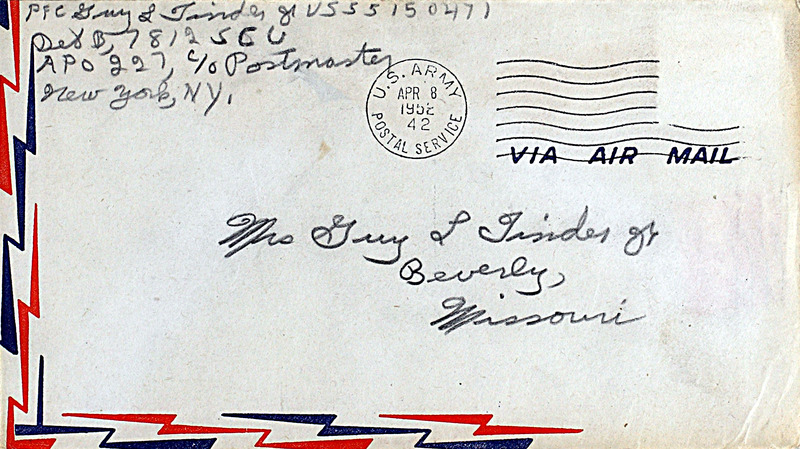 PFC Guy L Tinder Jr US 55150471
Det B, 7812 SCU
APO 227, c/o Postmaster
New York, NY.
U.S. ARMY
APR 8
1952
42
POSTAL SERVICE
VIA AIR MAIL
Mrs Guy L Tinder Jr
Beverly,
Missouri